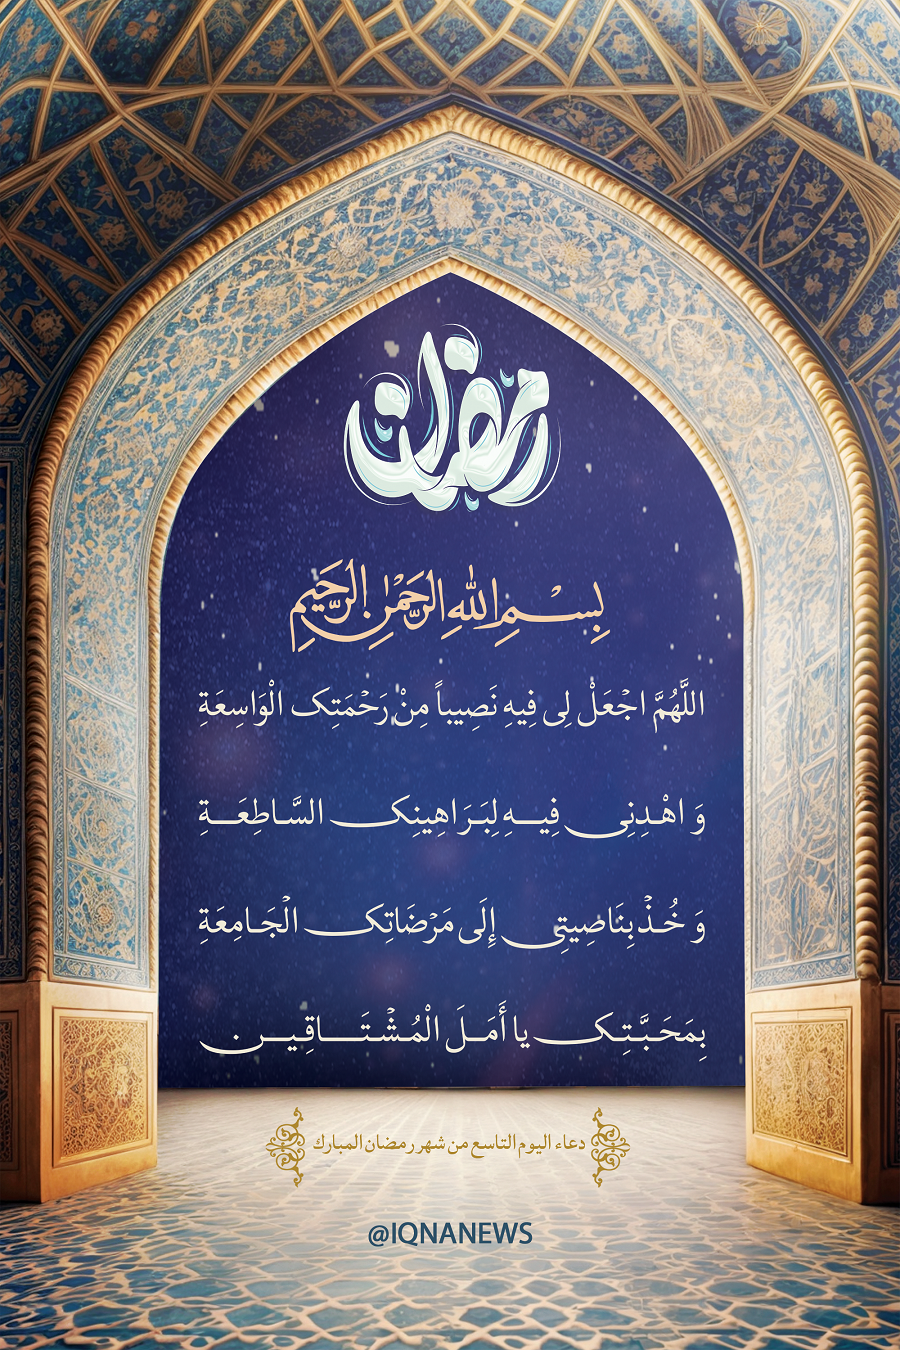 رمضان
بِسْمِ اللهِ الرَّحْمٰنِ الرَّحِيمِ
اللَّهُمَّ اجْعَلْ لِی فِيهِ نَصِيباً مِنْ رَحْمَتِکَ الْوَاسِعَةِ
وَ اهْدِنِی فِيهِ لِبَرَاهِينِکَ السَّاطِعَةِ
وَ خُذْ بِنَاصِيَتِی إِلَى مَرْضَاتِکَ الْجَامِعَةِ
بِمَحَبَّتِکَ يا أَمَلَ الْمُشْتَاقِينَ
دعاء الیوم التاسع من شهر رمضان المبارك
@IQNANEWS